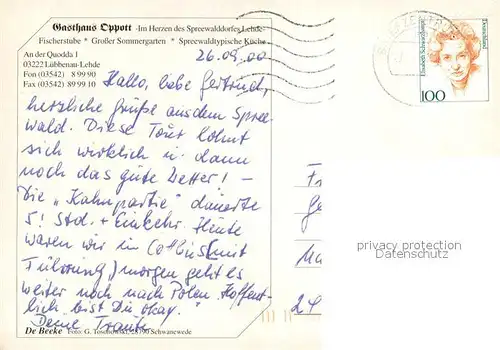 Gasthaus Oppott -Im Herzen des Spreewalddorfes Lehde-
Fischerstube * Großer Sommergarten * Spreewaldtypische Küche
An der Quodda 1
03222 Lübbenau-Lehde
Fon (03542) 8 99 90
Fax (03542) 89 99 10
26.09.00
Hallo, liebe Gertrud,
herzliche Grüße aus dem Spree-
wald. Diese Tour lohnt
sich wirklich u. dann
noch das gute Wetter! –
Die "Kahnpartie" dauerte
5! Std. + Einkehr. Heute
waren wir in Cottbus (mit
Führung) morgen geht es
weiter noch nach Polen. Hoffent-
lich bist Du "okay."
Deine Traute
De Beeke Foto: G. Toschowski, 28790 Schwanewede
Deutschland
Elisabeth Schwarzhaupt
100
privacy protection
Datenschutz
24